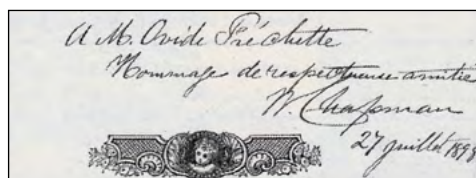 A M. Ovide Fréchette
Hommage de respectueuse amitié
W. Chapman
27 juillet 1898